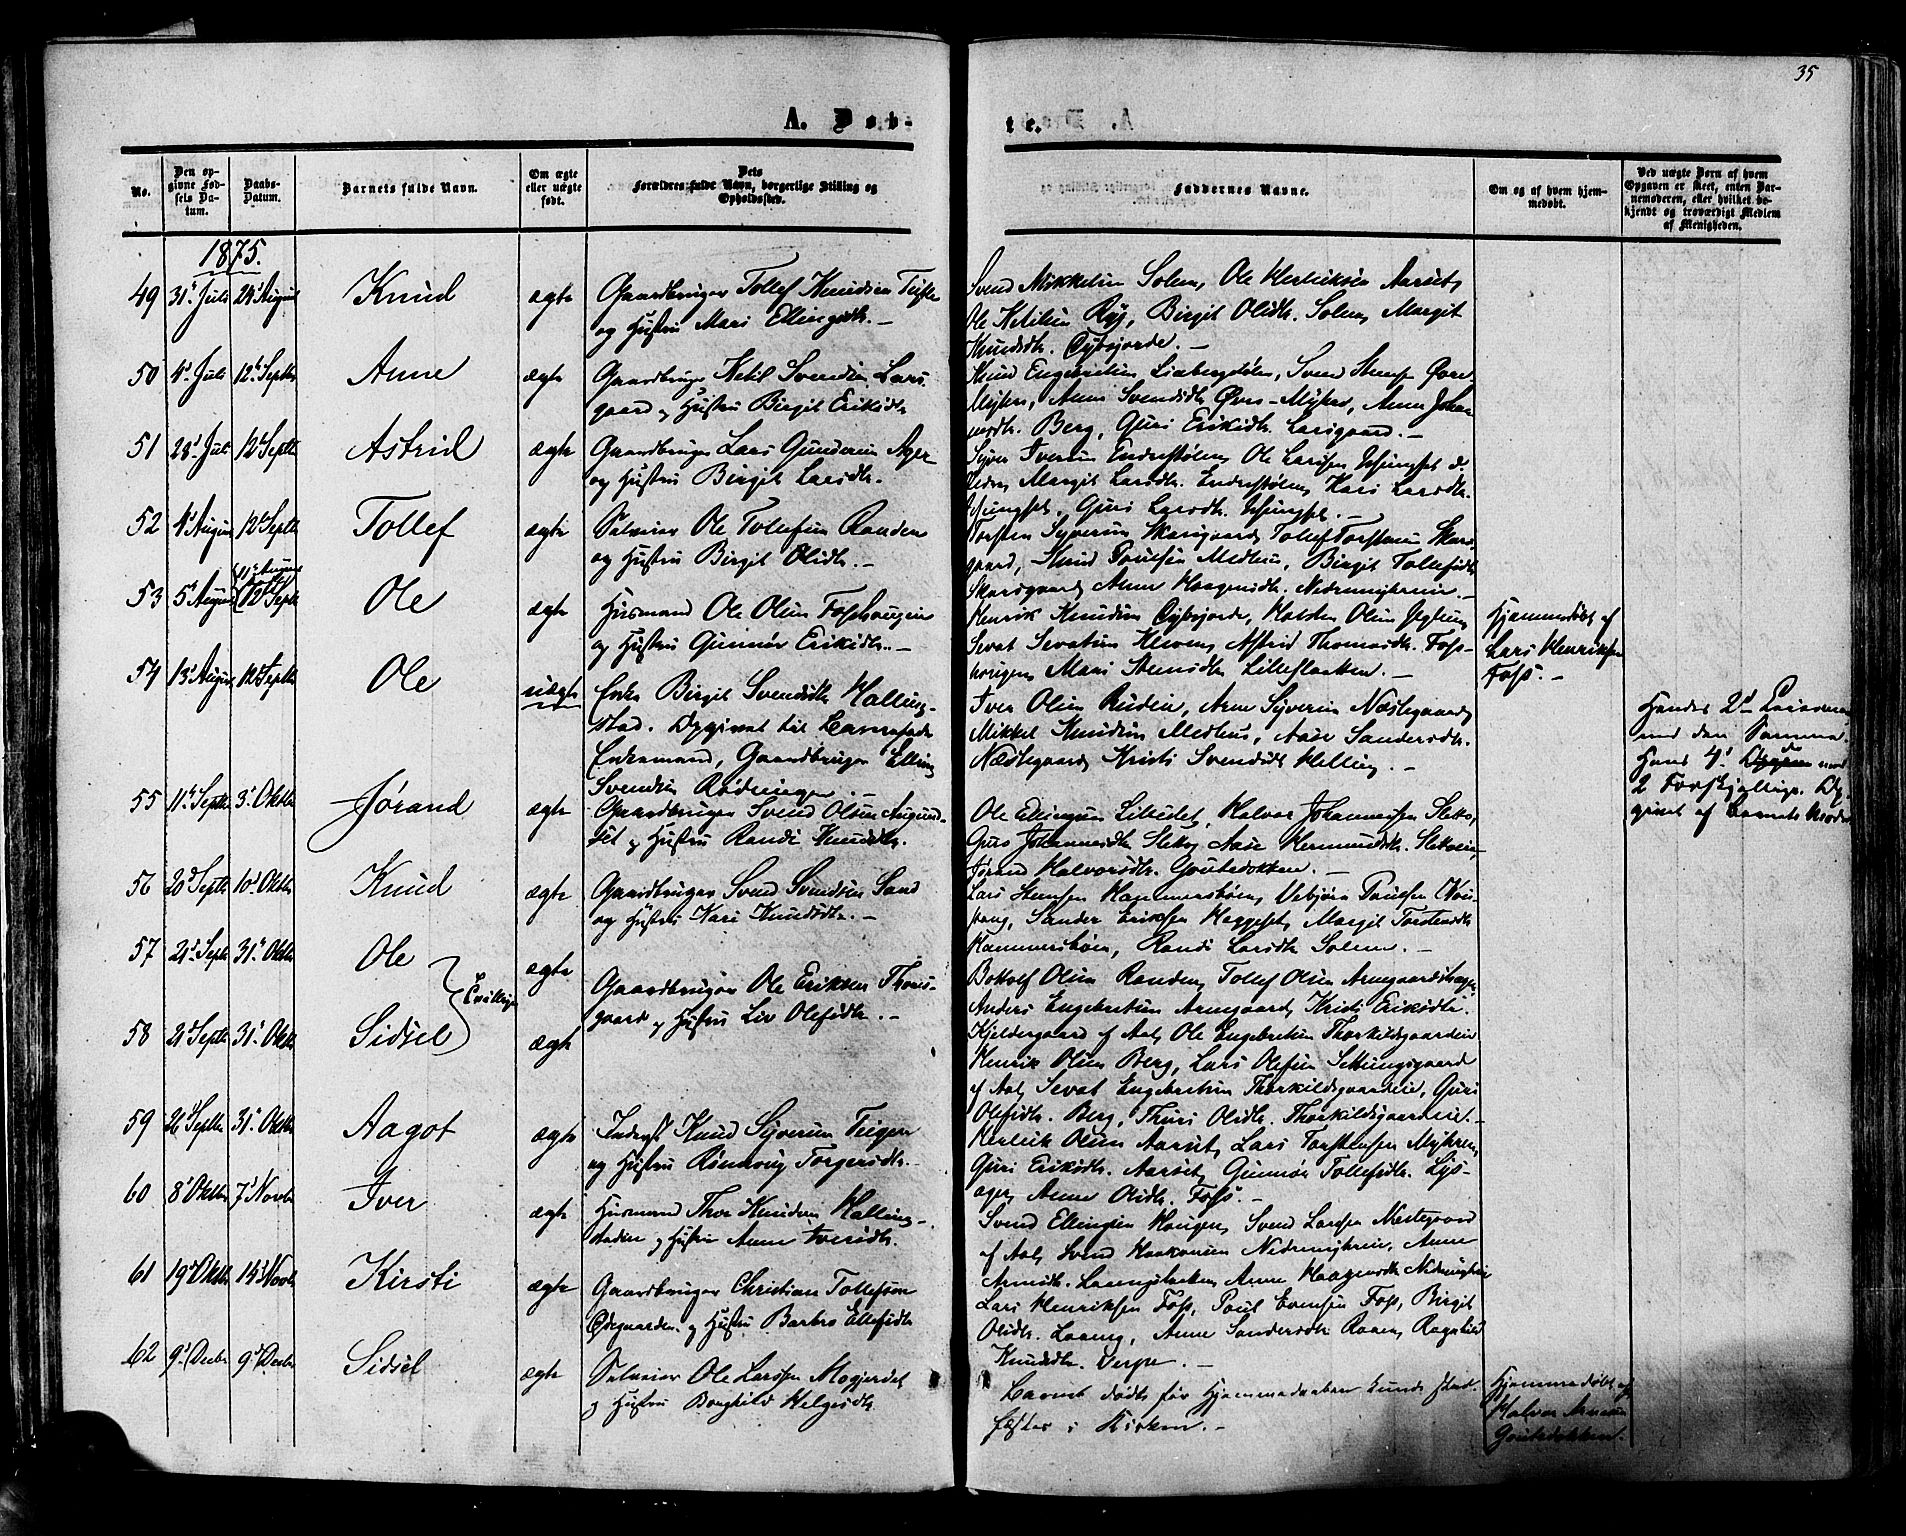 35
A. Døb-
te.
No.
Den op-
givne Fød-
sels Da-
tum.
Daabs-
Datum.
Barnets fulde Navn.
Om ægte
eller uægte
født.
Dets
Forældres fulde Navn, borgerlige Stilling og
Opholdssted.
Faddernes Navne.
Om og af hvem hjem-
medøbt.
Ved uægte Børn af hvem
Opgaven er skeet, enten Bar-
nemoderen, eller hvilket be-
kjendt og troværdigt Medlem
af Menigheden.
1875.
49 31' Juli 29' August Knud ægte Gaardbruger Tollef Knudsen
og Hustru Mari Ellingsdtr. –
Svend Mikkelsen Solem, Ole Herleiksen Aarset,
Ole Ketilsen Ry, Birgit Olsdtr. Solem, Margit
Knudsdtr. –
50 4' Juli 12' Septbr Anne ægte Gaardbruger Ketil Svendsen Lars-
gaard og Hustru Birgit Eriksdtr
Knud Engebretsen Svend
Anne Svendsdtr Anne Johan-
nesdtr. Berg, Guri Eriksdtr. Larsgaard. –
51 28' Juli 12' Septbr Astrid ægte Gaardbruger Lars Gundersen Ager
og Hustru Birgit Larsdtr. –
Syver Iversen Endrestølen, Ole Larsen
Margit Larsdtr. Endrestølen, Kari Larsdtr.
Guri Larsdtr. –
52 4' August 12' Septbr Tollef ægte Selveier Ole Tollefsen Randen
og Hustru Birgit Olsdtr. –
Torsten Syversen Skarsgaard, Tollef Torstensen Skars-
gaard, Knud Medhus, Birgit Tollefsdtr
Skarsgaard, Anne Haagensdtr. Nedremyhren. –
53 5' August 12' Septbr Ole ægte Husmand Ole Olsen Fosshaugen
og Hustru Gunnør Eriksdtr. –
Henrik Knudsen Olsen
Sevat Sevatsen Astrid Thomasdtr. Foss-
haugen, Mari Lilleslaatten. –
Hjemmedøbt af
Lars Henriksen
Foss. –
54 13' August 12' Septbr Ole uægte Enke Birgit Svendsdtr Halling-
stad. Opgivet til Barnefader
Enkemand, Gaardbruger Elling
Svendsen Rødningen. –
Iver Olsen Ruden, Arne Syversen Næstegaard,
Mikkel Knudsen Medhus, Aase Sandersdtr.
Næstegaard, Kristi Svendsdtr –
Hendes 2den
med den samme.
Hans 4' med
2 Forskjellige. Op-
givet af Barnets Moder
55 11' Septbr 3' Oktbr Jørand ægte Gaardbruger Svend Olsen
og Hustru Randi Knudsdtr.
Ole Ellingsen Halvor Johannessen Sletto,
Guro Johannesdtr Sletto, Aase Hermundsdtr.
Jørand Halvorsdtr. Goutedokken. –
56 20' Septbr 10' Oktbr Knud ægte Gaardbruger Svend Svendsen Sand
og Hustru Kari Knudsdtr. –
Lars Hammersbøen, Vebjørn
Sander Eriksen Heggeset, Margit Torstensdtr
Hammersbøen, Randi Larsdtr Solem. –
57 21' Septbr 31' Oktbr Ole Tvillinger ægte Gaardbruger Ole Eriksen
og Hustru Liv Olefsdtr. –
58 21' Septbr 31' Oktbr Sidsel ægte
Botolf Olsen Randen, Tollef Olsen Arnegaardshagen
Anders Engebretsen Arnegaard, Kristi Eriksdtr.
Kjeldergaard af Aal, Ole Engebretsen Thorkildsgaarden
Henrik Olsen Berg, Lars Olefsen
af Aal, Sevat Engebretsen Thorkildsgaarden, Guri
Olefsdtr. Berg, Thuri Olsdtr. Thorkildsgaarden. –
59 26' Septbr 31' Oktbr Aagot ægte Inderst Knud Syversen Teigen
og Hustru Rønnaug Torgersdtr. –
Herleik Olsen Aarset, Lars Torstensen Myhren,
Guri Eriksdtr. Aarset, Gunnør Tollefsdtr. Lys-
ager, Anne Olsdtr. Foss. –
60 8' Oktbr 7' Novbr Iver ægte Husmand Thor Knudsen Halling-
staden og Hustru Anne Iversdtr.
Svend Ellingsen Haugen, Svend Larsen Nestegaard
af Aal, Svend Haakonsen Nedremyhren, Anne
Anne Haagensdtr Nedremyhren
61 19' Oktbr 14' Novbr Kirsti ægte Gaardbruger Christian Tollefsen
Ødegaarden og Hustru Barbro Ellefsdtr
Lars Henriksen Foss, Poul Evensen Foss, Birgit
Olsdtr. Anne Sandersdtr Raaen, Ragnhild
Knudsdtr. –
62 9' Decbr 9' Decbr Sidsel ægte Selveier Ole Larsen Mogjerdet
og Hustru Borghild Helgesdtr
Barnet døde før Hjemmedaaben kunde stad-
fæstes i Kirken. –
Hjemmedøbt af
Halvor Arnesen
Goutedokken.